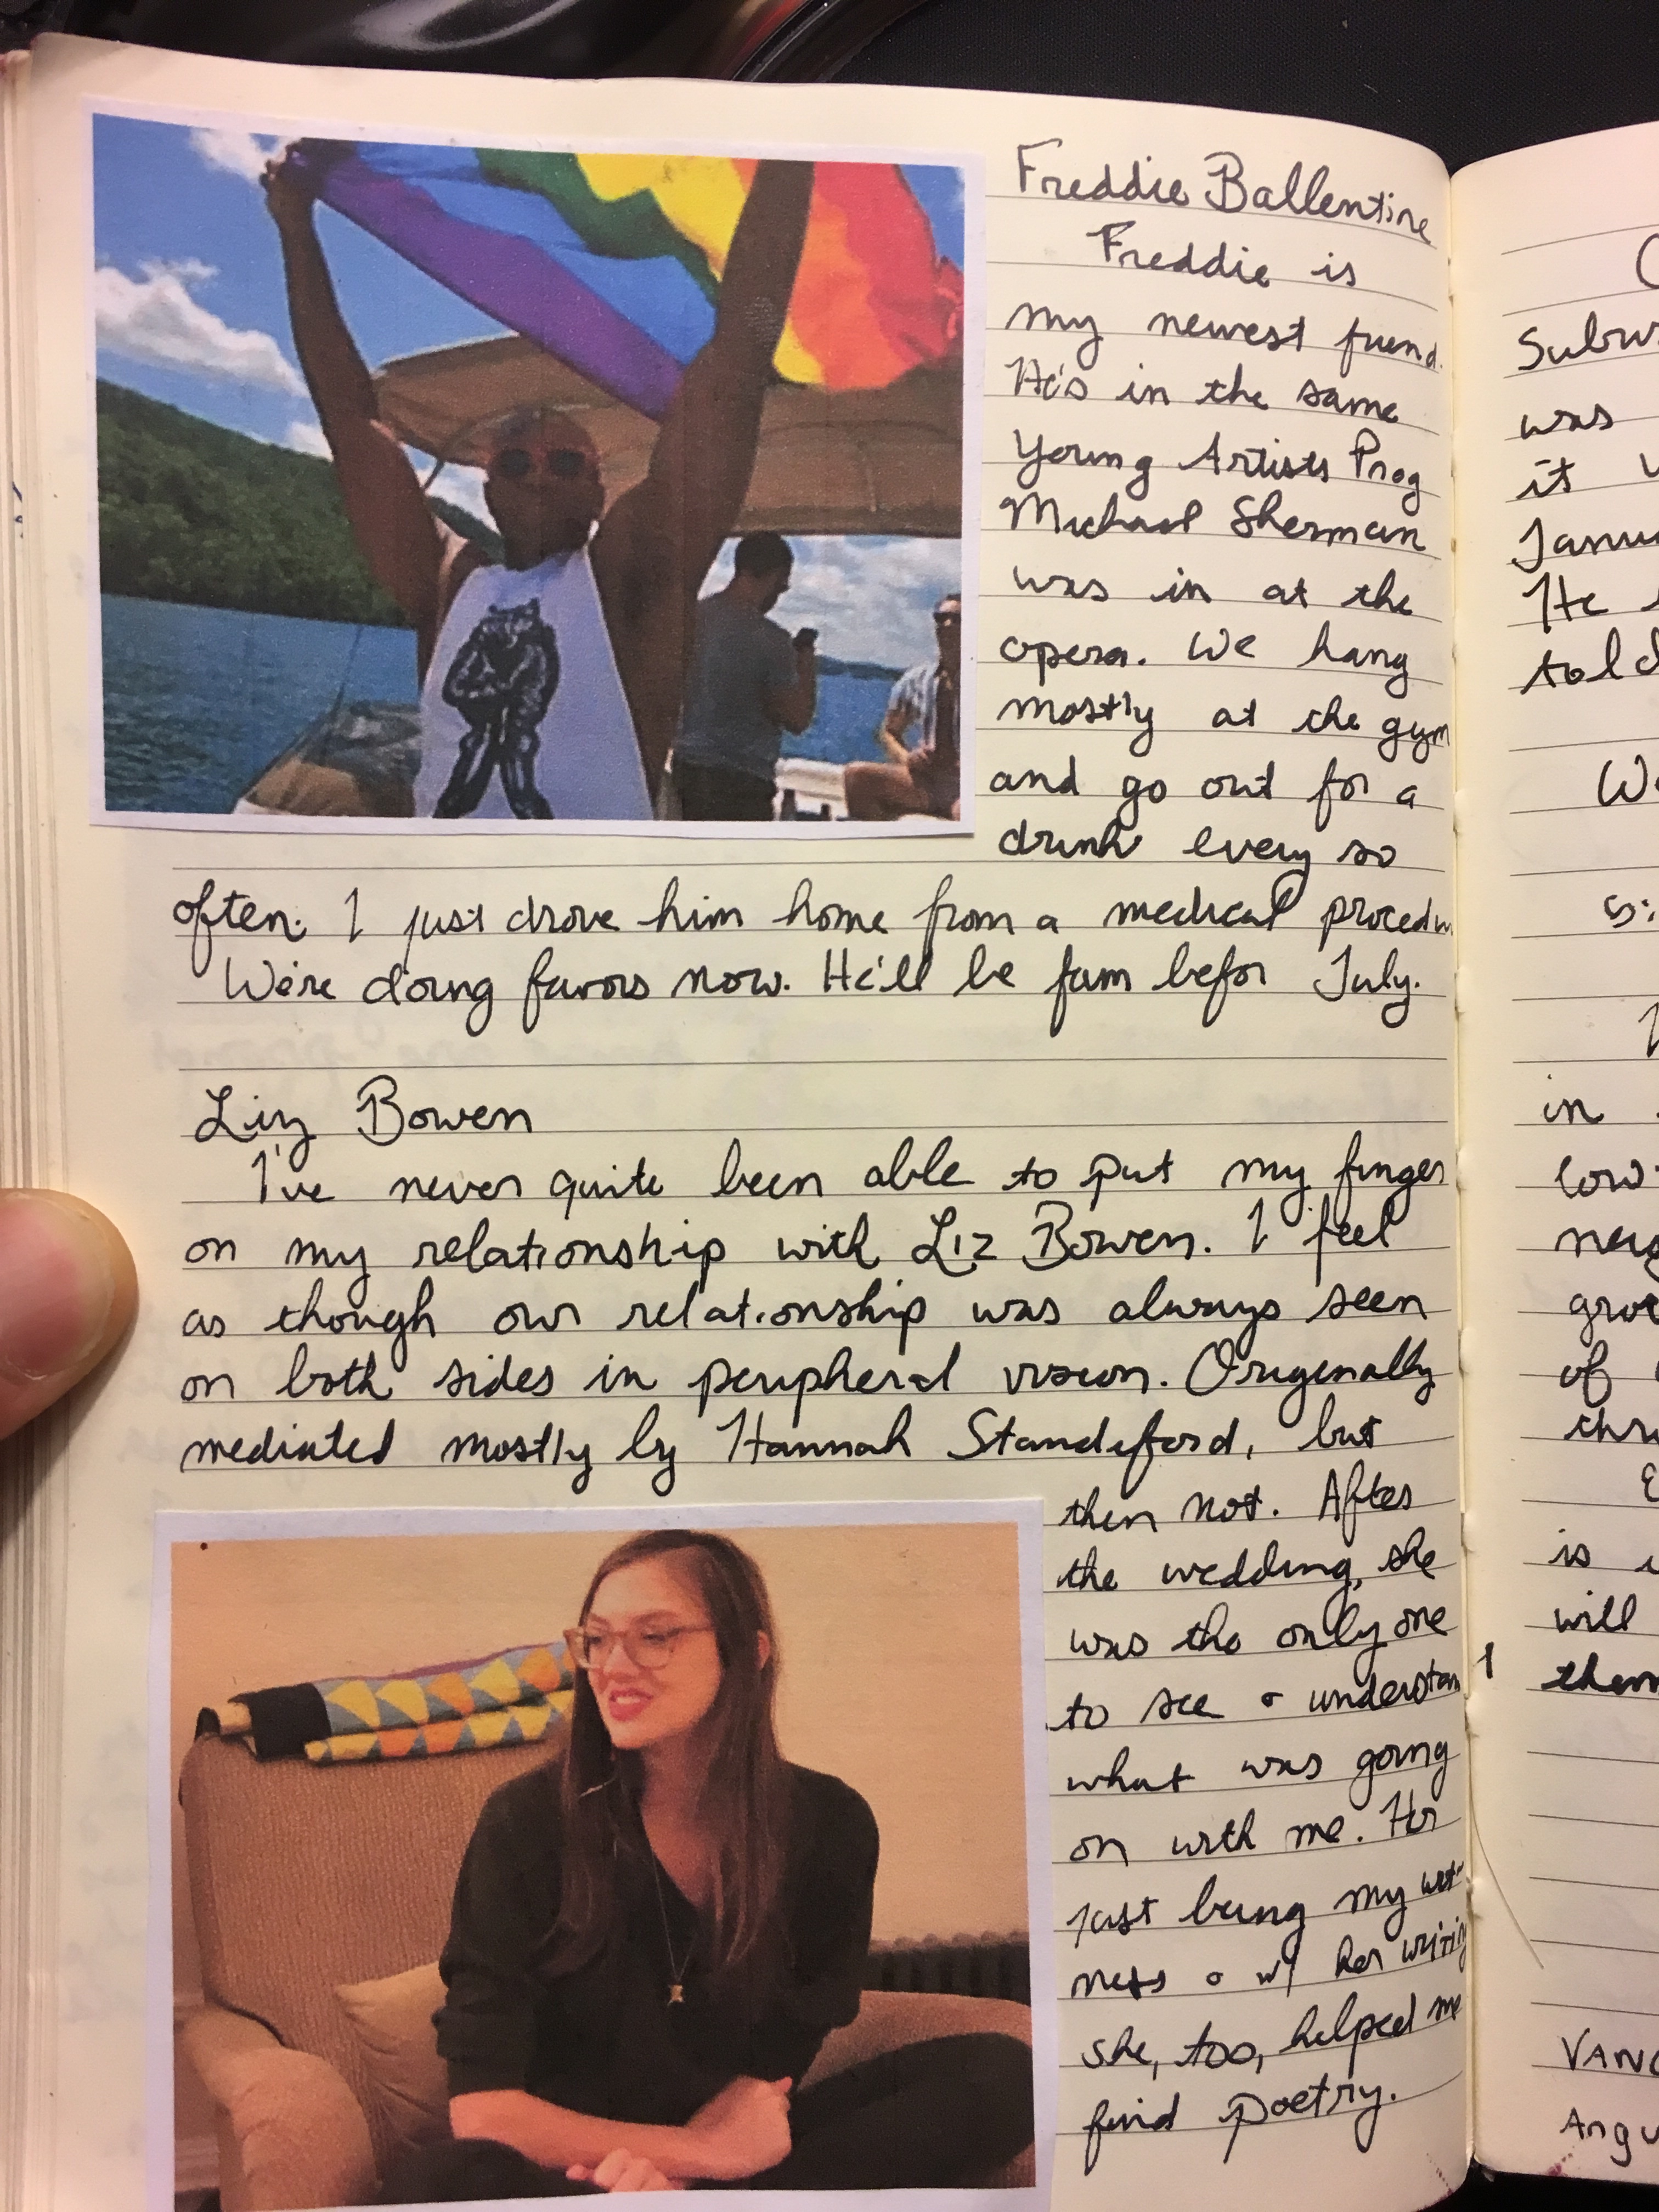 Freddie Ballentine
Freddie is
my newest friend.
He's in the same
Young Artists Prog
Michael Sherman
was in at the
opera. We hang
mostly at the gym
and go out for a
drink every so
often. I just drove him home from a medical procedu
We're doing favors now. He'll be fam befor July.
Liz Bowen
I've never quite been able to put my finger
on my relationship with Liz Bowen. I feel
as though our relationship was always seen
on both sides in peripheral vision. Originally
mediated mostly by Hannah Standeford, but
then not. After
the wedding, she
was the only one
to see & understan
what was going
on with me. Her
just being my wit-
ness & w/ her writing
she, too, helped me
find poetry.
Subw
was
it
Janu
He
told
We
in
low
neig
grou
of
thro
is
will
I them
VANC
Angu